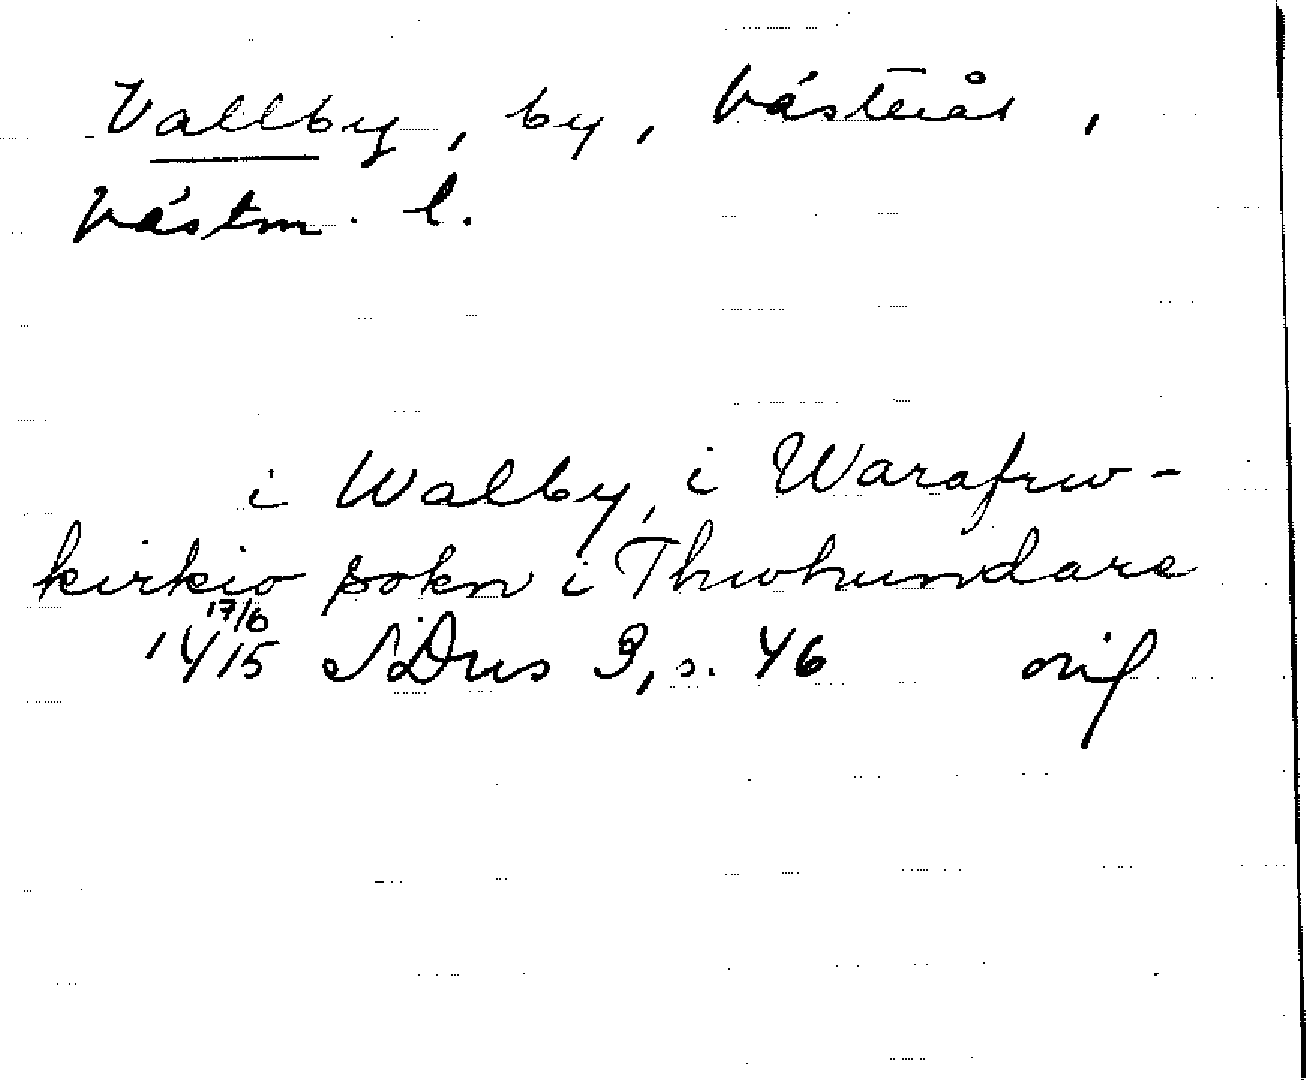 Vallby, by, Västerås,
Västm. l.
i Walby, i Warafrw-
kirkio sokn i Thwhundare
17/6
1415 SDns 3, s. 46 orig